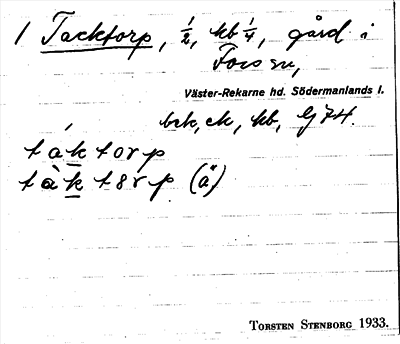 1 Tacktorp, 1/2, kb 1/4, gård i
Fors sn,
Väster-Rekarne hd. Södermanlands l.
bek, ek, kb, Gj 74.
táktorp
tàkt8rp (å)
TORSTEN STENBORG 1933.